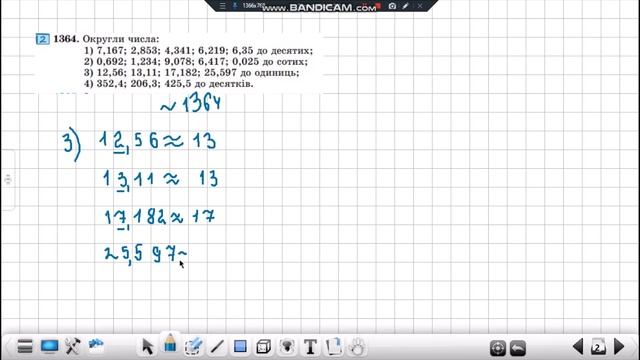 1366x768
www.BANDICAM.com
2 1364. Округли числа:
1) 7,167; 2,853; 4,341; 6,219; 6,35 до десятих;
2) 0,692; 1,234; 9,078; 6,417; 0,025 до сотих;
3) 12,56; 13,11; 17,182; 25,597 до одиниць;
4) 352,4; 206,3; 425,5 до десятків.
~1364
3) 12,56 ≈ 13
13,11 ≈ 13
17,182 ≈ 17
25,597~
T
2